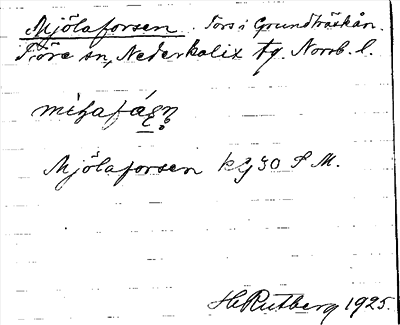 Mjölaforsen. Fors i Grundträskån.
Töre sn, Nederkalix tg. Norrb. l.
Mjölaforsen kg 30 S M.
H Rutberg 1925.